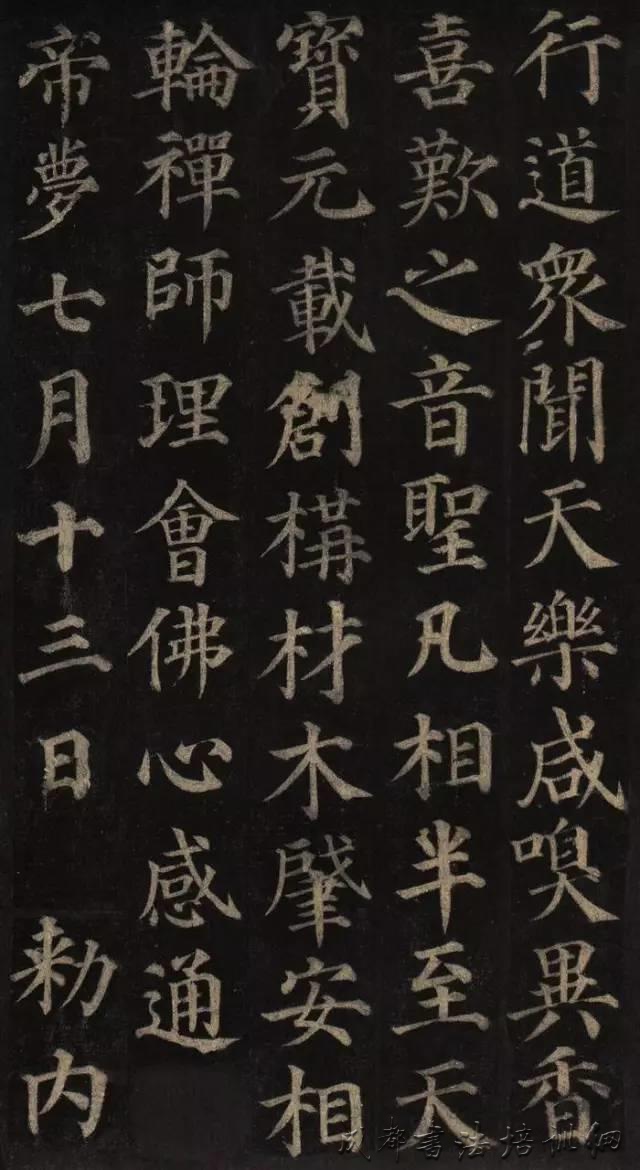 行道衆聞天樂咸嗅異香
喜歎之音聖凡相半至天
寶元載創構材木肇安相
輪禪師理會佛心感通
帝夢七月十三日 勅内
成都書法培训網